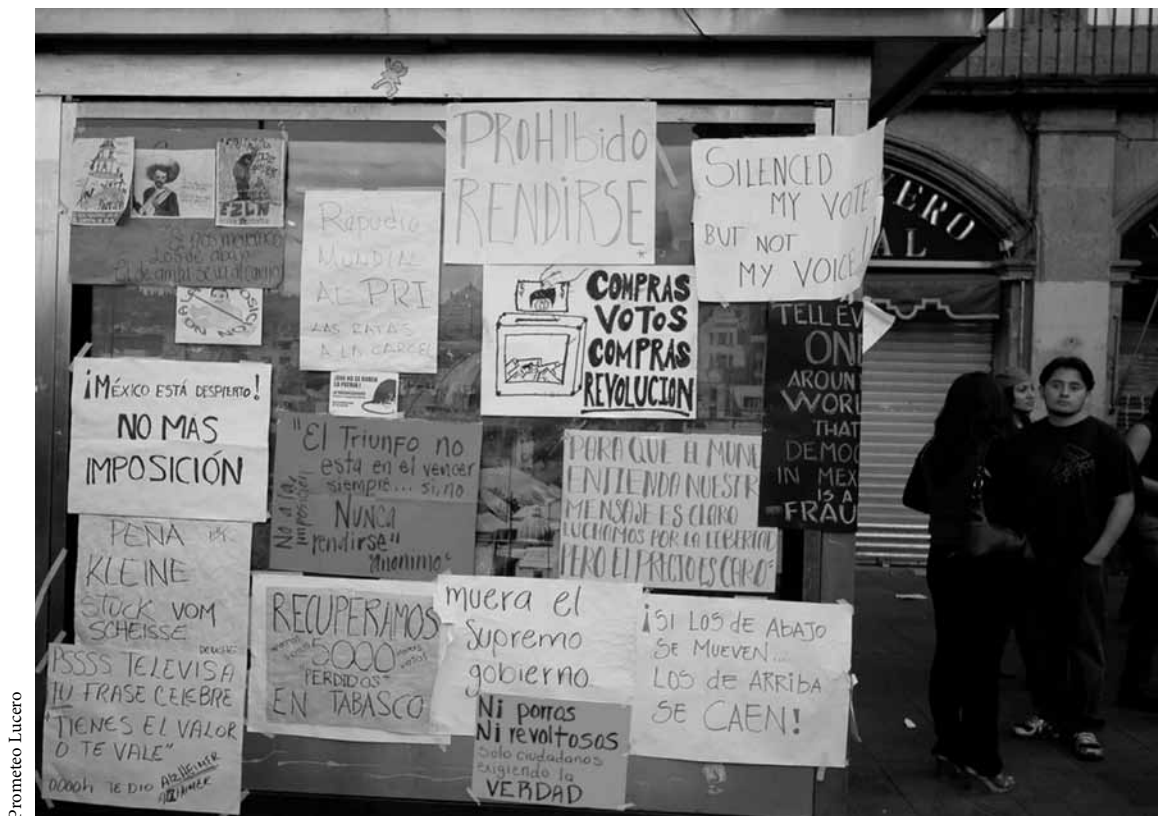 Prometeo Lucero
EZLN
Si nos movemos
Los de abajo
PROHIbido
RENDIRSE
SILENCED
MY VOTE
BUT NOT
MY VOICE!
Repudio
MUNDIAL
AL PRI
LAS RATAS
A LA CARCEL
COMPRAS
VOTOS
COMPRAS
REVOLUCION
TELL EV
ON
AROUN
WORL
THAT
DEMOC
IN MEX
IS A
FRAU
¡MÉXICO ESTÁ DESPIERTO!
NO MAS
IMPOSICIÓN
"El Triunfo no
esta en el vencer
siempre... si, no
Nunca
rendirse"
"anonimo"
No a la
imposición
"PARA QUE EL MUN
ENTIENDA NUESTR
MENSAJE ES CLARO
LUCHAMOS POR LA LIBERTAD
PERO EL PRECIO ES CARO"
PEÑA
KLEINE
STÜCK VOM
SCHEISSE
PSSSS TELEVISA
TU FRASE CELEBRE
"TIENES EL VALOR
O TE VALE"
OOOOh TE DIO ALZHEIMER
RECUPERAMOS
5000
PERDIDOS
EN TABASCO
muera el
supremo
gobierno
Ni porras
Ni revoltosos
Solo ciudadanos
exigiendo la
VERDAD
¡SI LOS de ABAJO
SE MUEVEN...
LOS de ARRIBA
SE CAEN!
VERO
AL